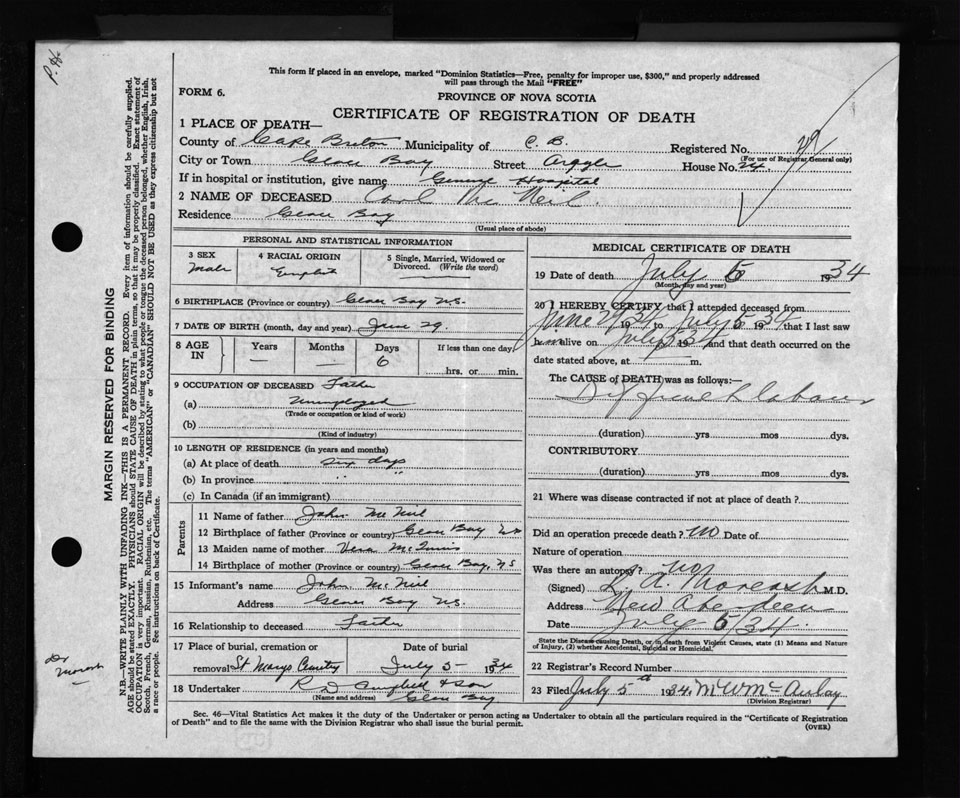 P.H.
This form if placed in an envelope, marked "Dominion Statistics—Free, penalty for improper use, $300," and properly addressed
will pass through the Mail "FREE"
FORM 6.
PROVINCE OF NOVA SCOTIA
CERTIFICATE OF REGISTRATION OF DEATH
1 PLACE OF DEATH—
County of Cape Breton Municipality of C. B. Registered No.
(For use of Registrar General only)
City or Town Glace Bay Street Argyle House No. 24
If in hospital or institution, give name General Hospital
2 NAME OF DECEASED Carl Mc Neil.
Residence Glace Bay
(Usual place of abode)
PERSONAL AND STATISTICAL INFORMATION
3 SEX
Male
4 RACIAL ORIGIN
English
5 Single, Married, Widowed or
Divorced. (Write the word)
6 BIRTHPLACE (Province or country) Glace Bay N.S.
7 DATE OF BIRTH (month, day and year) June 29.
8 AGE
IN
Years
—
Months
—
Days
6
If less than one day
hrs. or min.
9 OCCUPATION OF DECEASED Father
(a) Unemployed
(Trade or occupation or kind of work)
(b)
(Kind of industry)
10 LENGTH OF RESIDENCE (in years and months)
(a) At place of death six days
(b) In province "
(c) In Canada (if an immigrant)
Parents
11 Name of father John Mc Neil
12 Birthplace of father (Province or country) Glace Bay NS
13 Maiden name of mother Vera McInnis
14 Birthplace of mother (Province or country) Glace Bay, NS
15 Informant's name John Mc Neil
Address Glace Bay N.S.
16 Relationship to deceased Father
17 Place of burial, cremation or
removal St Marys Cemetry
Date of burial
July 5- 1934
18 Undertaker & Son
(Name and address) Glace Bay
MEDICAL CERTIFICATE OF DEATH
19 Date of death July 5 1934
(Month, day and year)
20 I HEREBY CERTIFY that I attended deceased from
June 29 1934 to July 5 1934 that I last saw
him alive on July 5 1934 and that death occurred on the
date stated above, at m.
The CAUSE of DEATH was as follows:—
(duration) yrs mos dys.
CONTRIBUTORY
(duration) yrs mos dys.
21 Where was disease contracted if not at place of death?
Did an operation precede death? no Date of
Nature of operation
Was there an autopsy? no
(Signed) M.D.
Address New Aberdeen
Date July 5/34.
State the Disease causing Death, or in death from Violent Causes, state (1) Means and Nature
of Injury, (2) whether Accidental, Suicidal or Homicidal.
22 Registrar's Record Number
23 Filed July 5th 1934. McAulay
(Division Registrar)
Sec. 46—Vital Statistics Act makes it the duty of the Undertaker or person acting as Undertaker to obtain all the particulars required in the "Certificate of Registration
of Death" and to file the same with the Division Registrar who shall issue the burial permit.
(OVER)
MARGIN RESERVED FOR BINDING
N.B.—WRITE PLAINLY WITH UNFADING INK—THIS IS A PERMANENT RECORD. Every item of information should be carefully supplied.
AGE should be stated EXACTLY. PHYSICIANS should STATE CAUSE OF DEATH in plain terms, so that it may be properly classified. Exact statement of
OCCUPATION is very important. RACIAL ORIGIN will be described by stating to what people or tongue the deceased person belonged, whether English, Irish,
Scotch, French, German, Russian, Ruthenian, etc. The terms "AMERICAN" or "CANADIAN" SHOULD NOT BE USED as they express citizenship but not
a race or people. See instructions on back of Certificate.
Dr